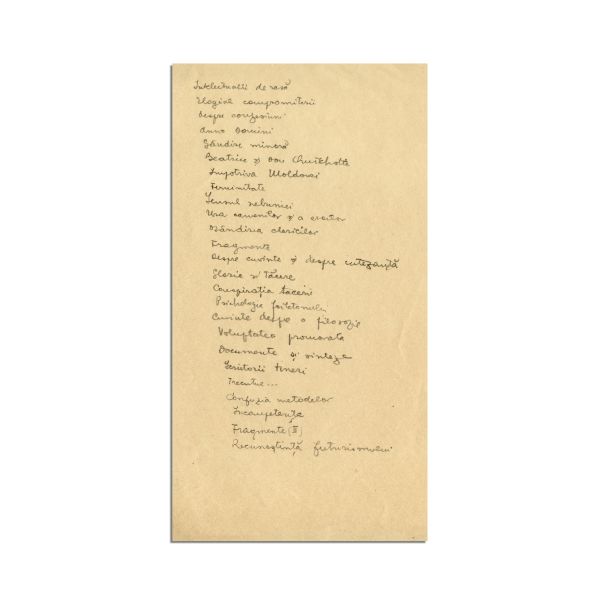 Intelectualii de rasă
Elogiul compromiterii
Despre confesiuni
Anno Domini
Gândire minoră
Beatrice și Don Chuikhotte
Împotriva Moldovei
Feminitate
Sensul nebuniei
Ura oamenilor și a
Osândirea clasicilor
Fragmente
Despre cuvinte și despre cutezanță
Glorie și tăcere
Conspirația tăcerii
Psichologia foiletonului
Cuvinte despre o filozofie
Voluptatea
Documente și sinteze
Scriitorii tineri
Trecutul...
Confuzia metodelor
Incompetența
Fragmente (II)
Recunoștință futurismului